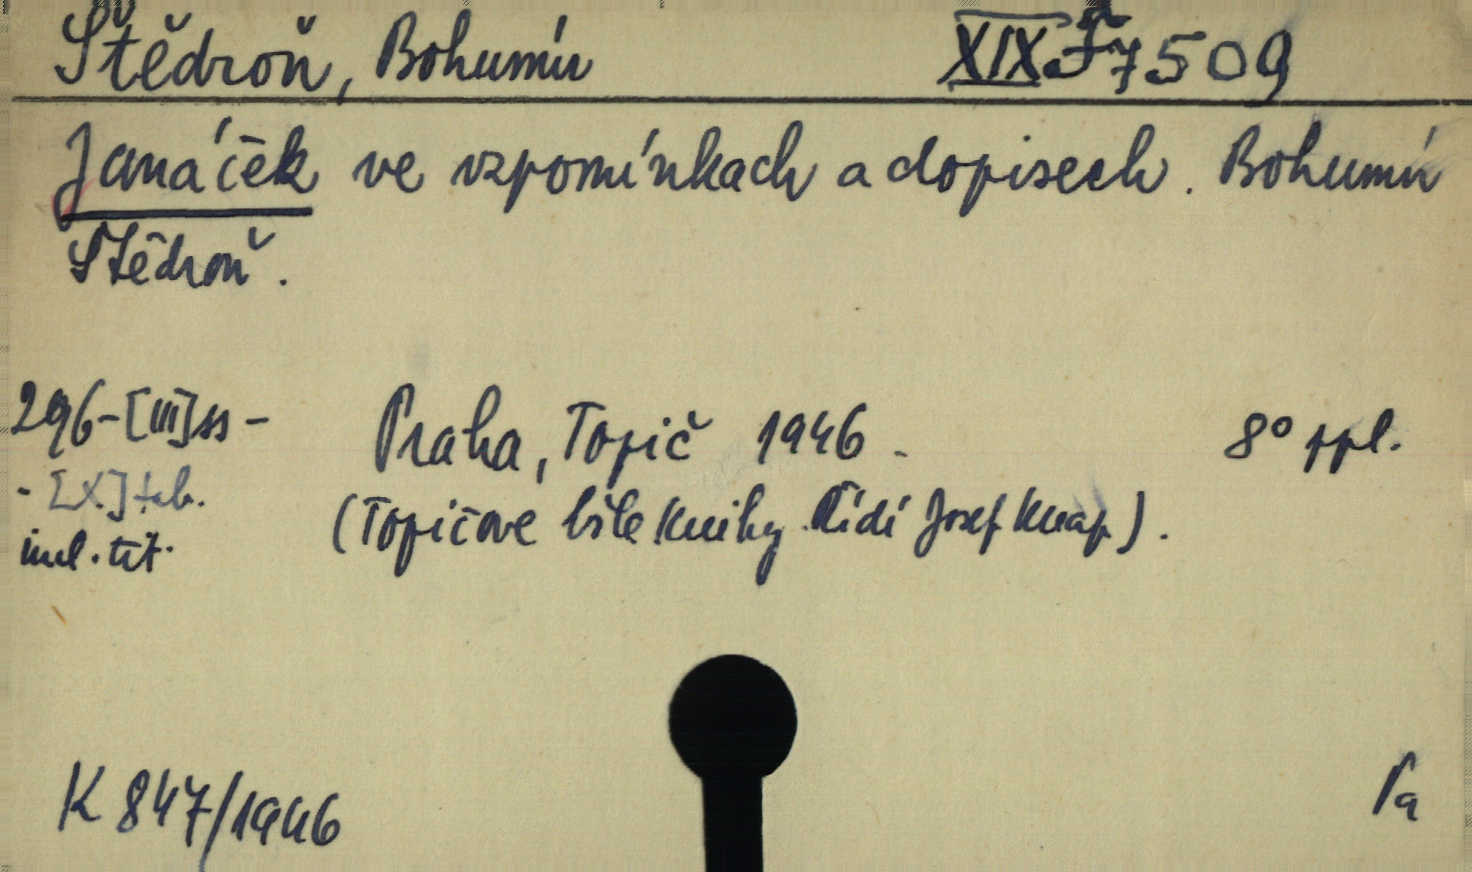 Štědroň, Bohumír XIX F 7509
Janáček ve vzpomínkách a dopisech. Bohumír
Štědroň.
296-[III] ss -
- [X] tab.
incl. tit.
Praha, Topič 1946. 8° ppl.
(Topičove bíle knihy. Řídí Josef Knap).
K 847/1946 Pa